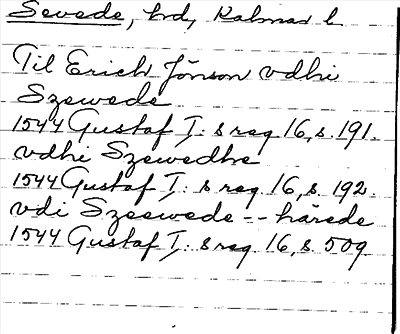 Sevede, hd, Kalmar l.
Til Erich Jönson vdhi
Szewede
1544 Gustaf I:s reg 16, s. 191.
vdhi Szewedhe
1544 Gustaf I:s reg. 16, s. 192.
vdi Szeewede -- härede
1544 Gustaf I:s reg. 16, s 509